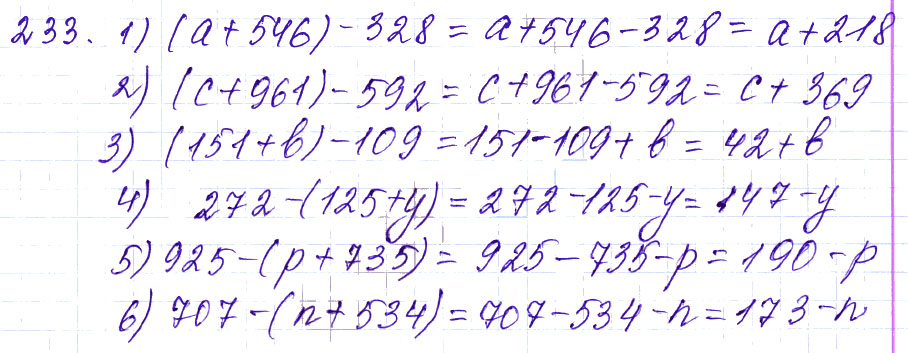 233. 1) (a+546)-328 = a+546-328 = a+218
2) (c+961)-592 = c+961-592 = c+369
3) (151+b)-109 = 151-109+b = 42+b
4) 272-(125+y) = 272-125-y = 147-y
5) 925-(p+735) = 925-735-p = 190-p
6) 707-(n+534) = 707-534-n = 173-n